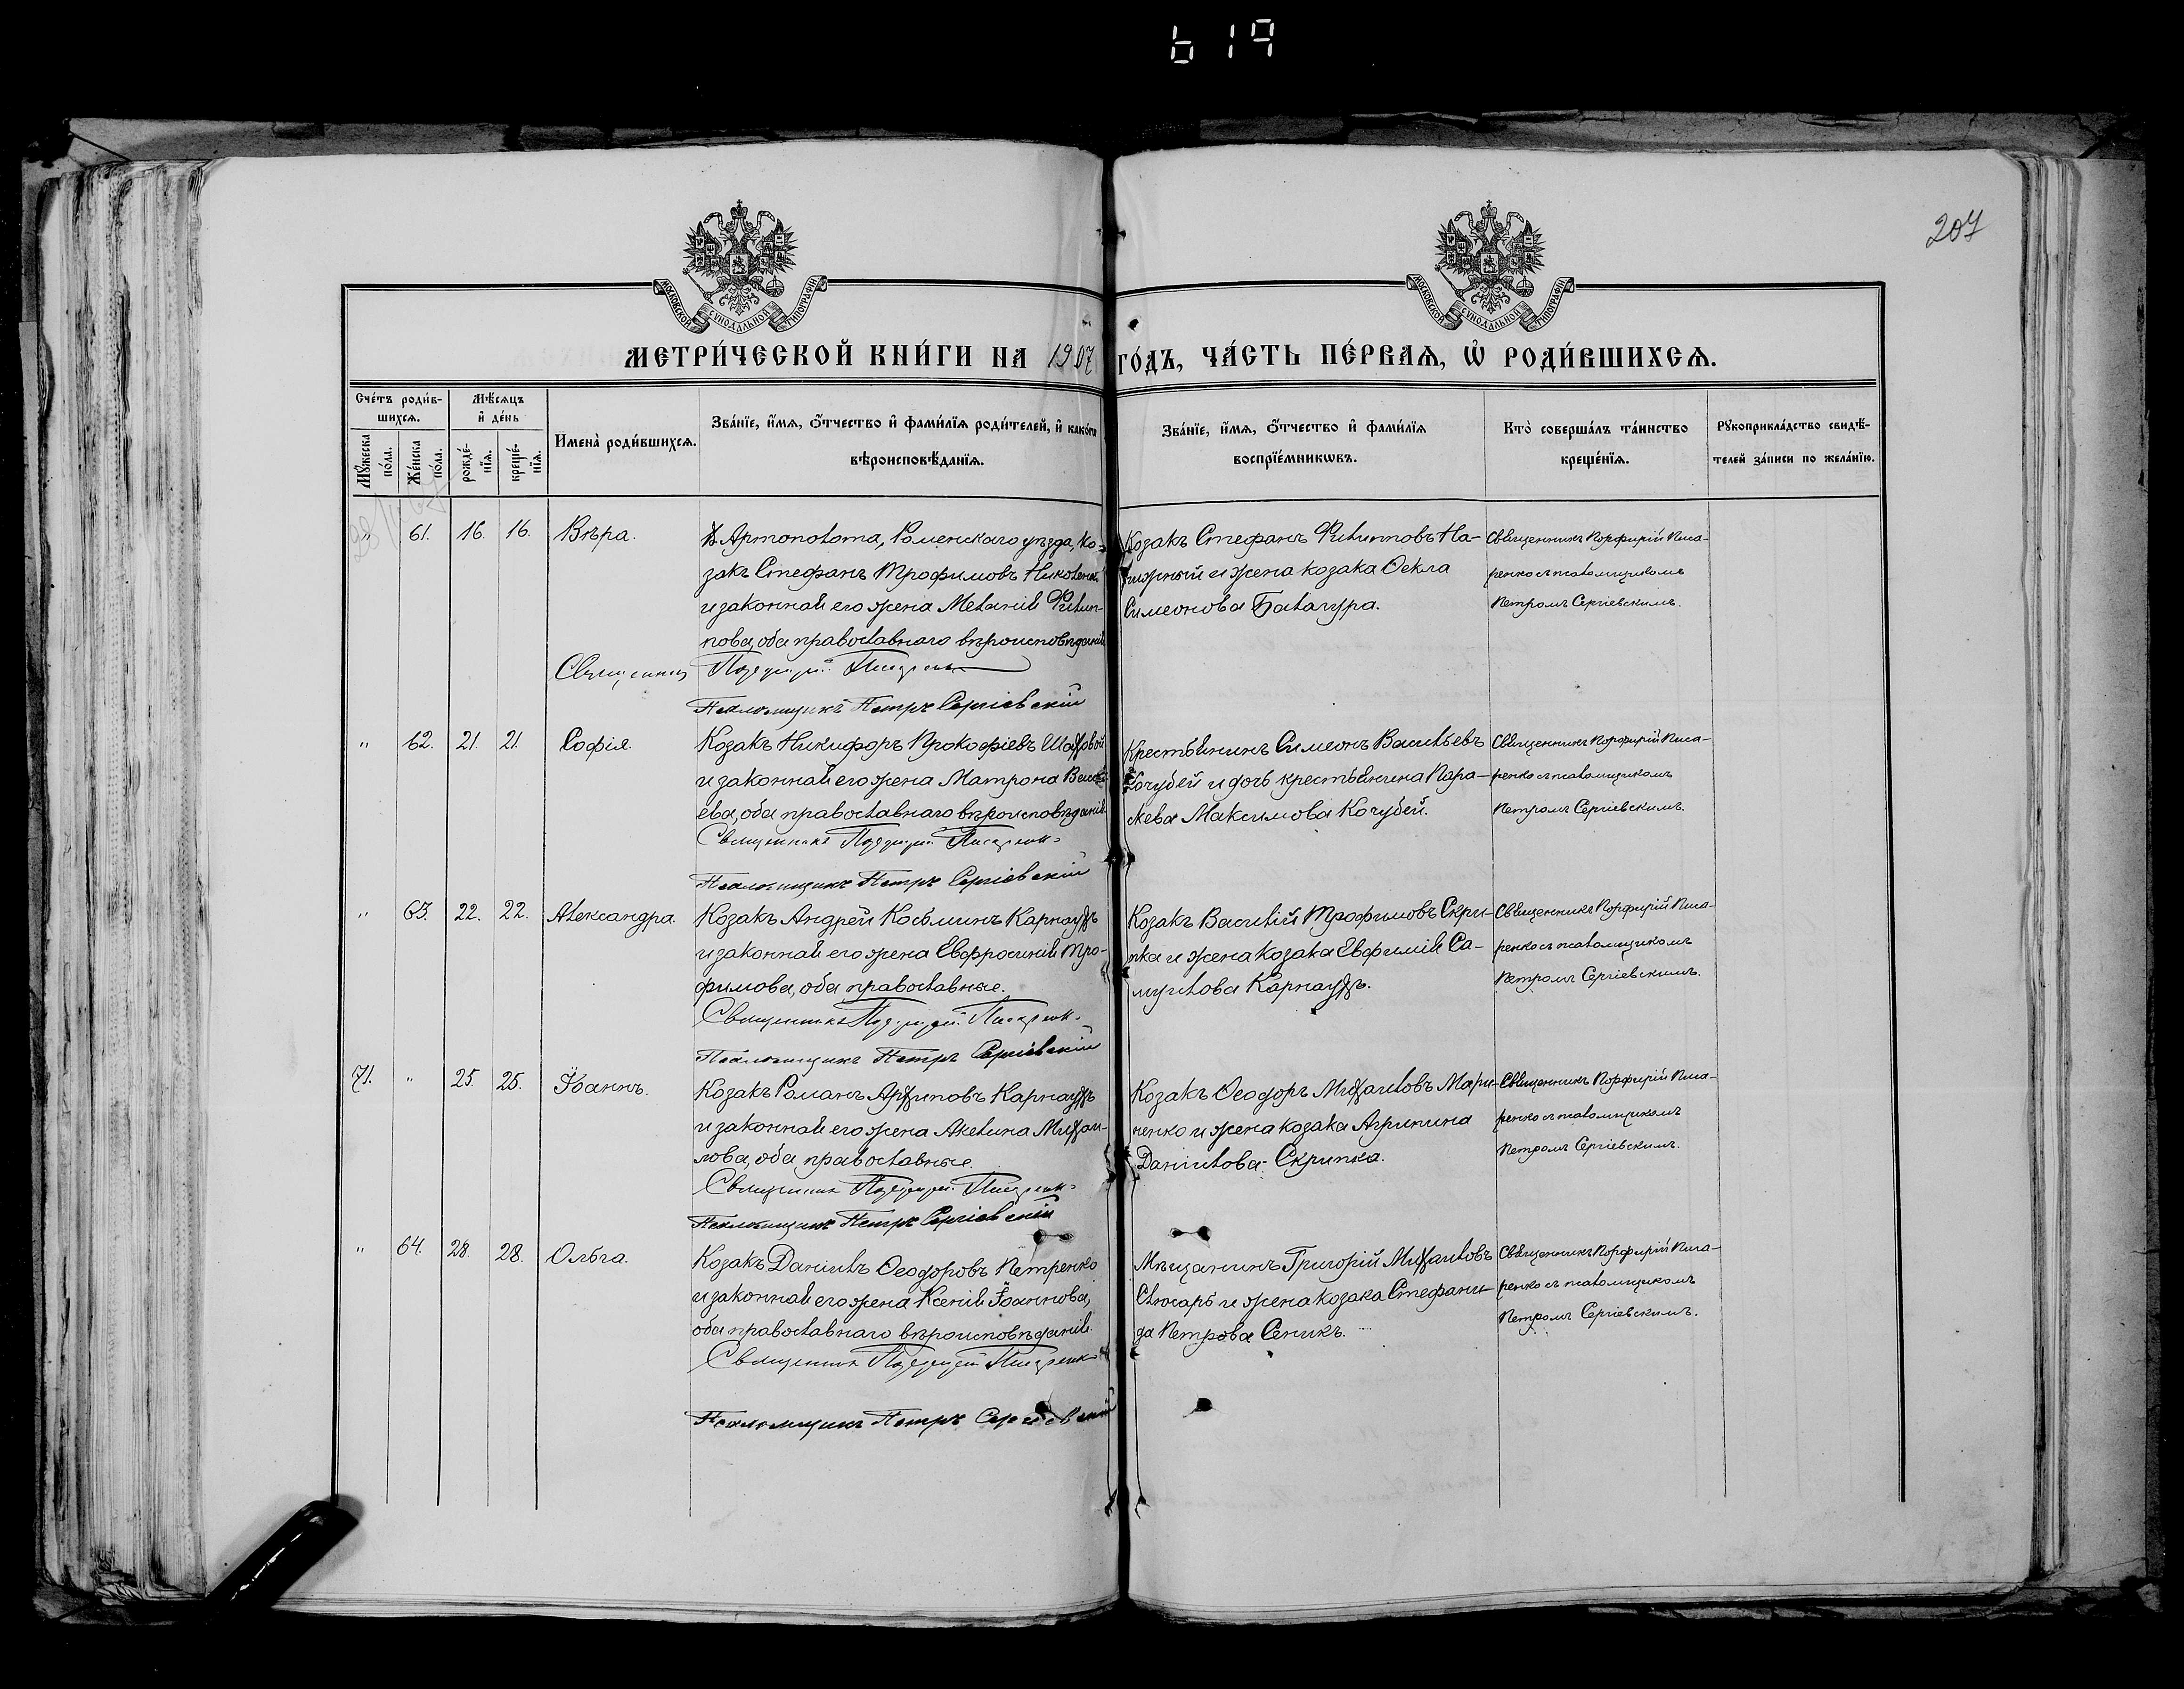 619
207
МОСКОВСКОЙ СѴНОДАЛЬНОЙ ТИПОГРАФІИ
МОСКОВСКОЙ СѴНОДАЛЬНОЙ ТИПОГРАФІИ
МЕТРИ́ЧЕСКОЙ КНИ́ГИ НА 1907 ГО́ДЪ, ЧА́СТЬ ПЕ́РВАЯ, Ѡ҆ РОДИ́ВШИХСѦ.
Сче́тъ роди́в-
шихсѧ.
Мꙋ́жеска по́ла.
Же́нска по́ла.
Мѣ́сѧцъ
и҆ де́нь
рожде́-
нїѧ.
креще́-
нїѧ.
И҆мена̀ роди́вшихсѧ.
Зва́нїе, и҆́мѧ, ѻ҆́тчество и҆ фами́лїѧ роди́телей, и҆ како́гѡ
вѣроисповѣ́данїѧ.
Зва́нїе, и҆́мѧ, ѻ҆́тчество и҆ фами́лїѧ
воспрїе́мникѡвъ.
Кто̀ соверша́лъ та́инство
креще́нїѧ.
Рꙋкоприкла́дство свидѣ́-
телей за́писи по жела́нїю.
" 61. 16. 16. Вѣра.
Х. Артополота, Роменскаго уѣзда, ко-
закъ Стефанъ Трофимовъ Николенко
и законная его жена Меланія Филип-
пова, оба православнаго вѣроисповѣданія
Священникъ Порфирій Писаренко
Псаломщикъ Петръ Сергіевскій
Козакъ Стефанъ Филипповъ На-
и жена козака Ѳекла
Симеонова Балацура.
Священникъ Порфирій Писа-
ренко съ псаломщикомъ
Петромъ Сергіевскимъ.
" 62. 21. 21. Софія.
Козакъ Никифоръ Прокофіевъ Шаховой
и законная его жена Матрона Василь-
ева, оба православнаго вѣроисповѣданія
Священникъ Порфирій Писаренко
Псаломщикъ Петръ Сергіевскій
Крестьянинъ Симеонъ Васильевъ
Кочубей и дочь крестьянина Пара-
скева Максимова Кочубей.
Священникъ Порфирій Писа-
ренко съ псаломщикомъ
Петромъ Сергіевскимъ.
" 63. 22. 22. Александра.
Козакъ Андрей Косьминъ Карнаухъ
и законная его жена Евфросинія Тро-
фимова, оба православные.
Священникъ Порфирій Писаренко
Псаломщикъ Петръ Сергіевскій
Козакъ Василій Трофимовъ Скри-
пка и жена козака Евфимія Са-
муилова Карнаухъ.
Священникъ Порфирій Писа-
ренко съ псаломщикомъ
Петромъ Сергіевскимъ.
71. " 25. 25. Іоаннъ.
Козакъ Романъ Архиповъ Карнаухъ
и законная его жена Акелина Михаи-
лова, оба православные.
Священникъ Порфирій Писаренко
Псаломщикъ Петръ Сергіевскій
Козакъ Ѳеодоръ Михаиловъ Мари-
ненко и жена козака Агрипина
Даниилова Скрипка.
Священникъ Порфирій Писа-
ренко съ псаломщикомъ
Петромъ Сергіевскимъ.
" 64. 28. 28. Ольга.
Козакъ Даніилъ Ѳеодоровъ Петренко
и законная его жена Ксенія Іоаннова,
оба православнаго вѣроисповѣданія.
Священникъ Порфирій Писаренко
Псаломщикъ Петръ Сергіевскій
Мѣщанинъ Григорій Михаиловъ
Слюсарь и жена козака Стефани-
да Петрова Сеникъ.
Священникъ Порфирій Писа-
ренко съ псаломщикомъ
Петромъ Сергіевскимъ.